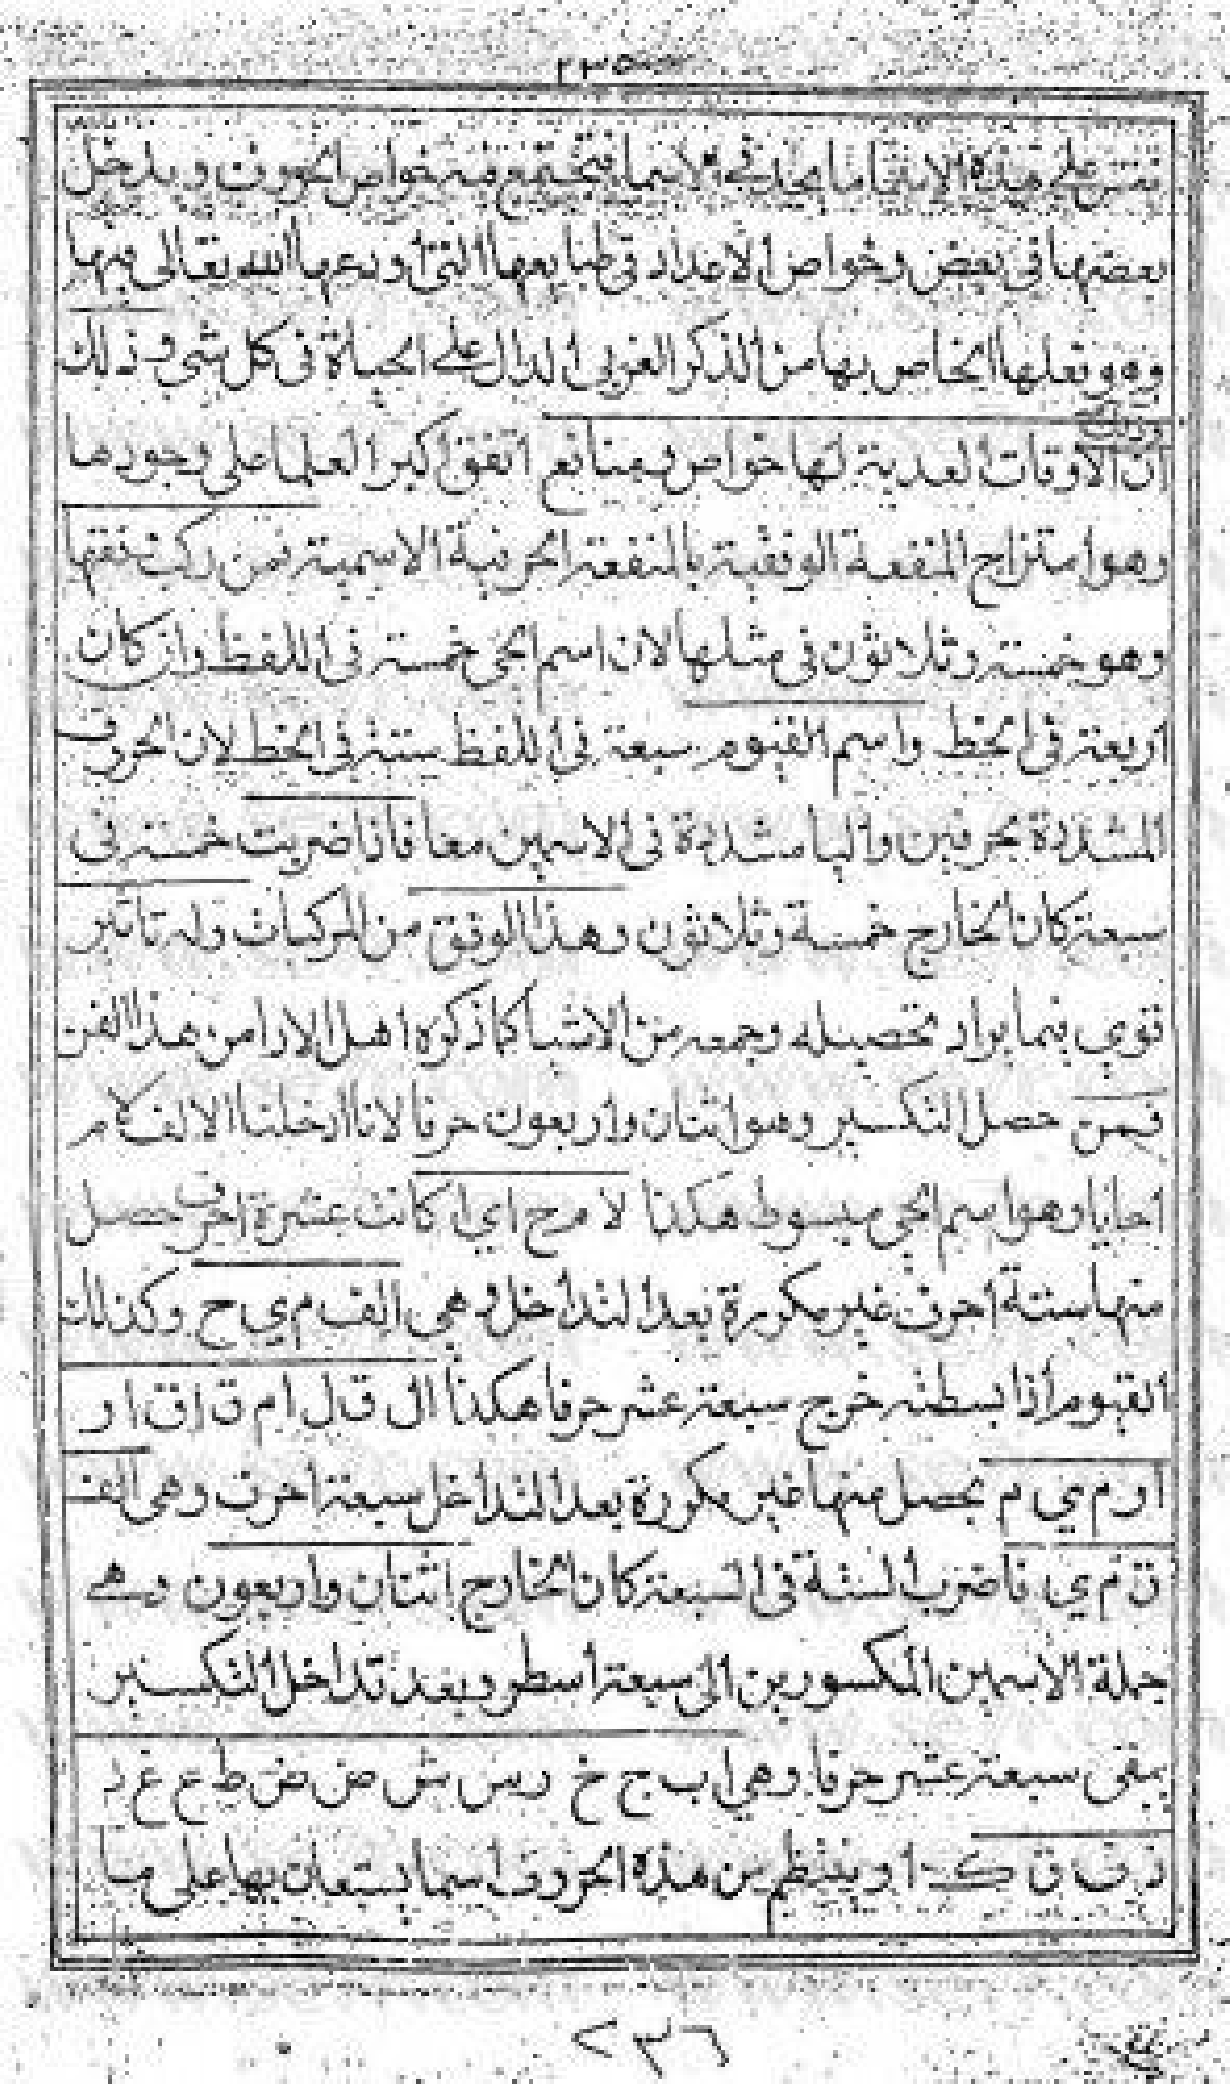 على هذه الاسما ما يحدث في الاسما فتجتمع فيه خواص الحروف ويدخل
بعضها في بعض وخواص الاعداد في طبايعها التي اودعها الله تعالى فيها
وهو فعلها الخاص بها من الذكر العزيز الدال على الحياة في كل شي وذلك
ان الاوفات العددية لها خواص ومنافع اتفق اكبر العلما على وجودها
وهو امتزاج المنفعة الوفقية بالمنفعة الحرفية الاسمية فمن ركب وفقها
وهو خمسة وثلاثون في مثلها لان اسم الحي خمسة في اللفظ وان كان
اربعة في الخط واسم القيوم سبعة في اللفظ ستة في الخط لان الحرف
المشددة بحرفين واليا مشددة في الاسمين معا فاذا ضربت خمسة في
سبعة كان الخارج خمسة وثلاثون وهذا الوفق من المركبات وله تاثير
قوي فيما يراد تحصيله وجمعه من الاشيا كما ذكره اهل الارا من هذا الفن
فمن حصل التكسير وهو اثنان واربعون حرفا لانا ادخلنا الالف لام
احايا وهو اسم الحي مبسوط هكذا لا م ح ا ي ا كانت عشرة احرف حصل
منها ستة احرف غير مكررة بعد التداخل وهي الف م ي ح وكذلك
القيوم اذا بسطته خرج سبعة عشر حرفا هكذا ال ف ل ام ق ا ق ا و
ا و م ي م يحصل منها غير مكررة بعد التداخل سبعة احرف وهي الف
ق م ي فاضرب الستة في السبعة كان الخارج اثنان واربعون وهي
جملة الاسمين المكسورين الى سبعة اسطر وبعد تداخل التكسير
يبقى سبعة عشر حرفا وهي ا ب ج خ د س ش ص ض ط ع غ د
ف ق ك ا وينتظم من هذه الحروف اسما يستعان بها على ما
٢٣٦